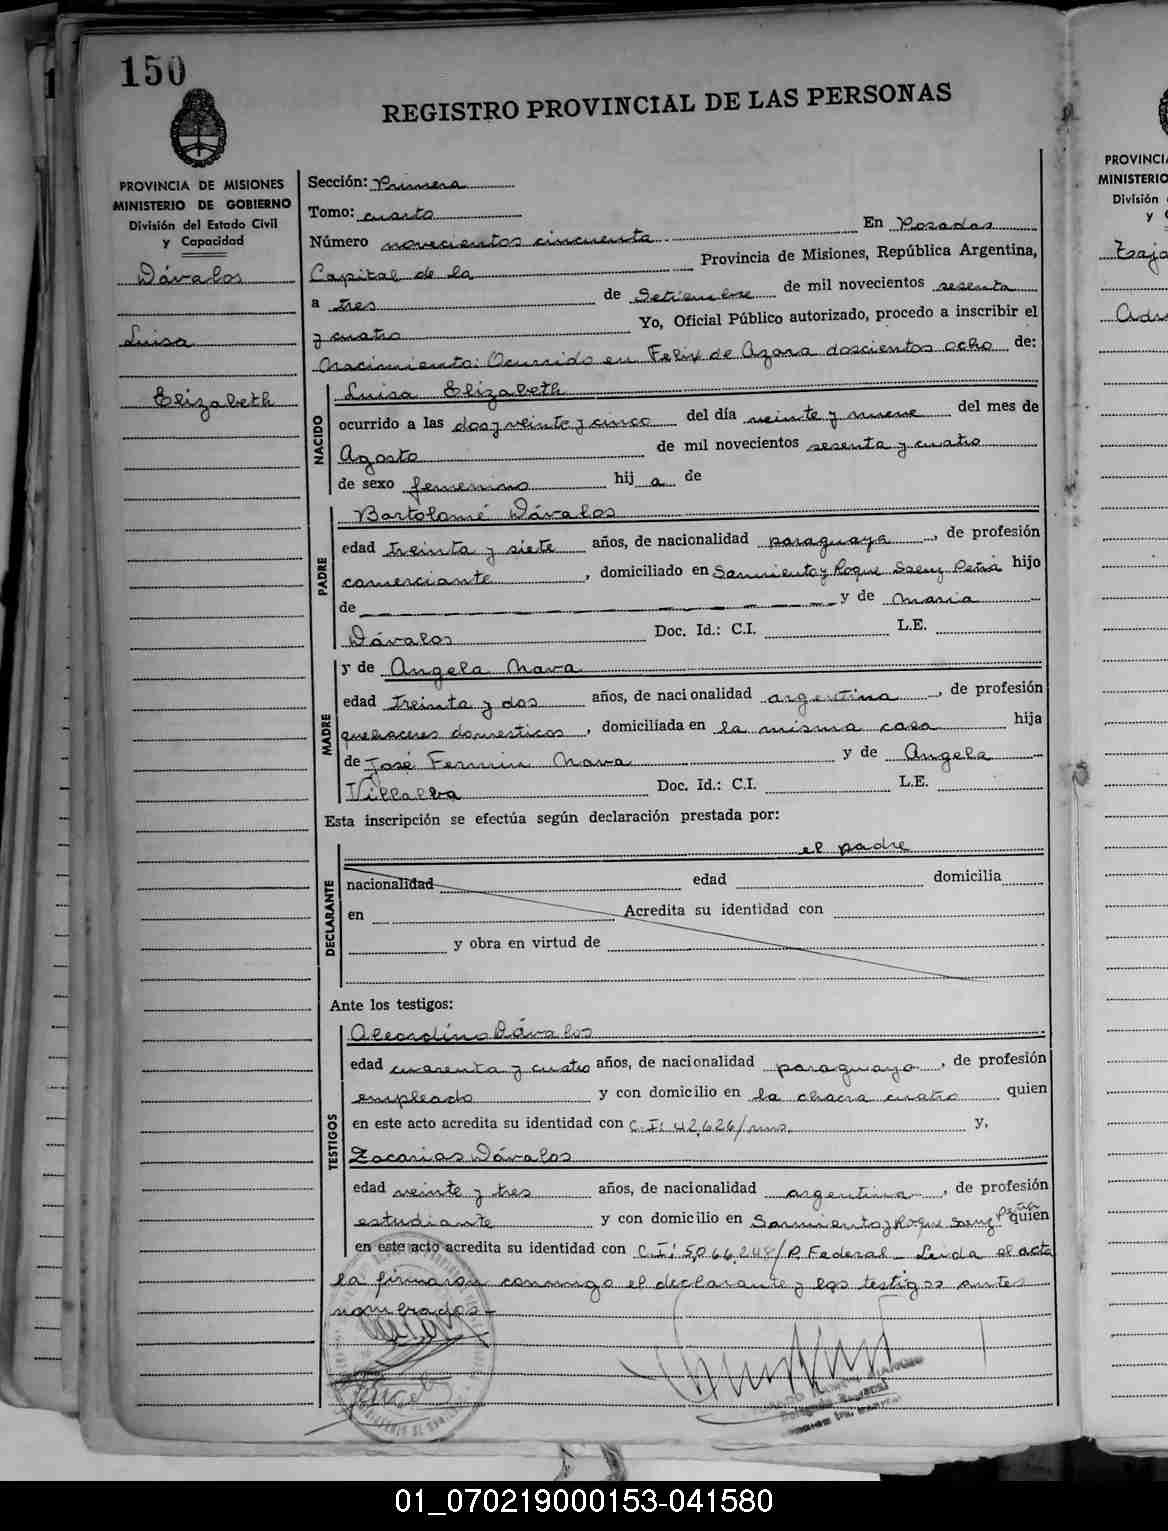 150
REGISTRO PROVINCIAL DE LAS PERSONAS
PROVINCIA DE MISIONES
MINISTERIO DE GOBIERNO
División del Estado Civil
y Capacidad
Dávalos
Luisa
Elizabeth
Sección: Primera
Tomo: cuarto
Número novecientos cincuenta En Posadas
Capital de la Provincia de Misiones, República Argentina,
a tres de Setiembre de mil novecientos sesenta
y cuatro Yo, Oficial Público autorizado, procedo a inscribir el
Nacimiento: Ocurrido en Felix de Azara doscientos ocho de:
NACIDO
Luisa Elizabeth
ocurrido a las dos y veinte y cinco del día veinte y nueve del mes de
Agosto de mil novecientos sesenta y cuatro
de sexo femenino hij a de
PADRE
Bartolomé Dávalos
edad treinta y siete años, de nacionalidad paraguaya, de profesión
comerciante, domiciliado en Sarmiento y Roque Saenz Peña hijo
de y de Maria
Dávalos Doc. Id.: C.I. L.E.
MADRE
y de Angela Nava
edad treinta y dos años, de nacionalidad argentina, de profesión
quehaceres domesticos, domiciliada en la misma casa hija
de José Fermin Nava y de Angela
Villalba Doc. Id.: C.I. L.E.
Esta inscripción se efectúa según declaración prestada por:
el padre
DECLARANTE
nacionalidad edad domicilia
en Acredita su identidad con
y obra en virtud de
Ante los testigos:
TESTIGOS
Dávalos
edad cuarenta y cuatro años, de nacionalidad paraguayo, de profesión
empleado y con domicilio en la chacra cuatro quien
en este acto acredita su identidad con C.I: 42.626/mns. y,
Zacarias Dávalos
edad veinte y tres años, de nacionalidad argentina, de profesión
estudiante y con domicilio en Sarmiento y Roque Saenz Peña quien
en este acto acredita su identidad con C.I: 5.066.248/P. Federal_ Leida el acta
la firmaron conmigo el declarante y los testigos antes
nombrados.-
PROVINCIA
MINISTERIO
División
y C
01_070219000153-041580